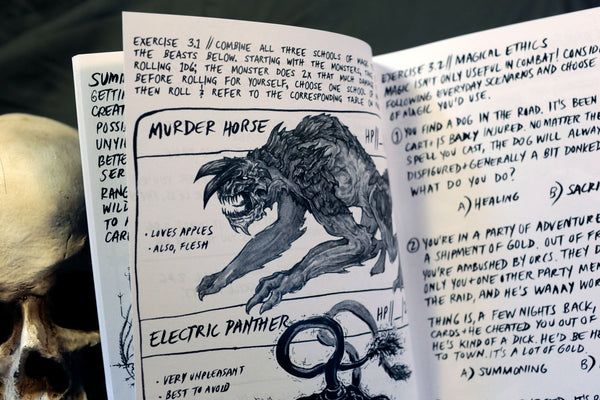 SUMM
GETTIN
CREAT
POSSI
UNYI
BETTE
SER
RANG
WILD
TO
CARI
EXERCISE 3.1 // COMBINE ALL THREE SCHOOLS OF MAGIC
THE BEASTS BELOW. STARTING WITH THE MONSTERS, TAKE
ROLLING 1D6; THE MONSTER DOES 2X THAT MUCH DAM
BEFORE ROLLING FOR YOURSELF, CHOOSE ONE SCHOOL O
THEN ROLL & REFER TO THE CORRESPONDING TABLE ON
MURDER HORSE
HP//_
• LOVES APPLES
• ALSO, FLESH
ELECTRIC PANTHER
HP//_
• VERY UNPLEASANT
• BEST TO AVOID
EXERCISE 3.2 // MAGICAL ETHICS
MAGIC ISN'T ONLY USEFUL IN COMBAT! CONSID
FOLLOWING EVERYDAY SCENARIOS AND CHOOSE
OF MAGIC YOU'D USE.
① YOU FIND A DOG IN THE ROAD. IT'S BEEN
CART & IS BADLY INJURED. NO MATTER THE
SPELL YOU CAST, THE DOG WILL ALWAY
DISFIGURED & GENERALLY A BIT DONKED
WHAT DO YOU DO?
A) HEALING B) SACRI
② YOU'RE IN A PARTY OF ADVENTURE
A SHIPMENT OF GOLD. OUT OF FR
YOU'RE AMBUSHED BY ORCS. THEY D
ONLY YOU & ONE OTHER PARTY MEM
THE RAID, AND HE'S WAAAY WOR
THING IS, A FEW NIGHTS BACK,
CARDS & HE CHEATED YOU OUT OF
HE'S KIND OF A DICK. HE'D BE HE
TO TOWN. IT'S A LOT OF GOLD.
A) SUMMONING B)